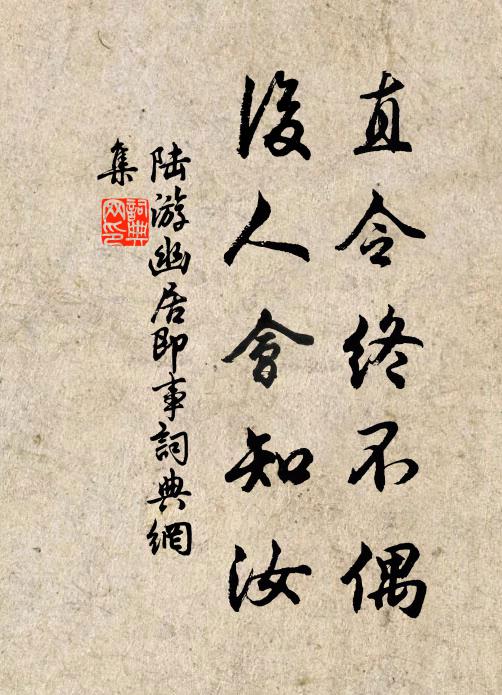 直令終不偶
後人會知汝
陸游幽居即事詞典網
集
詞典
网印